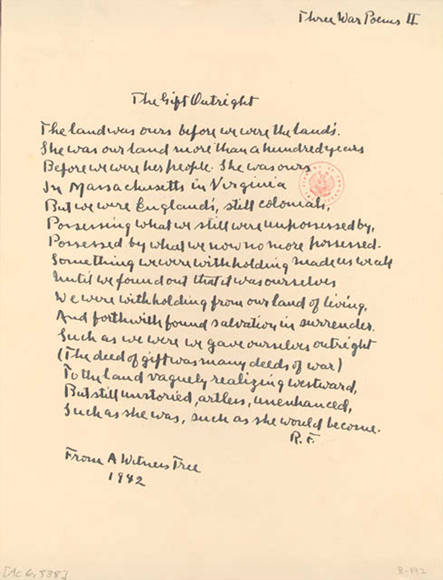 Three War Poems II
The Gift Outright
The land was ours before we were the land's.
She was our land more than a hundred years
Before we were her people. She was ours
In Massachusetts in Virginia
But we were England's, still colonials,
Possessing what we still were unpossessed by,
Possessed by what we now no more possessed.
Something we were withholding made us weak
Until we found out that it was ourselves
We were withholding from our land of living,
And forthwith found salvation in surrender.
Such as we were we gave ourselves outright
(The deed of gift was many deeds of war)
To the land vaguely realizing westward,
But still unstoried, artless, unenhanced,
Such as she was, such as she would become.
R.F.
From A Witness Tree
1942